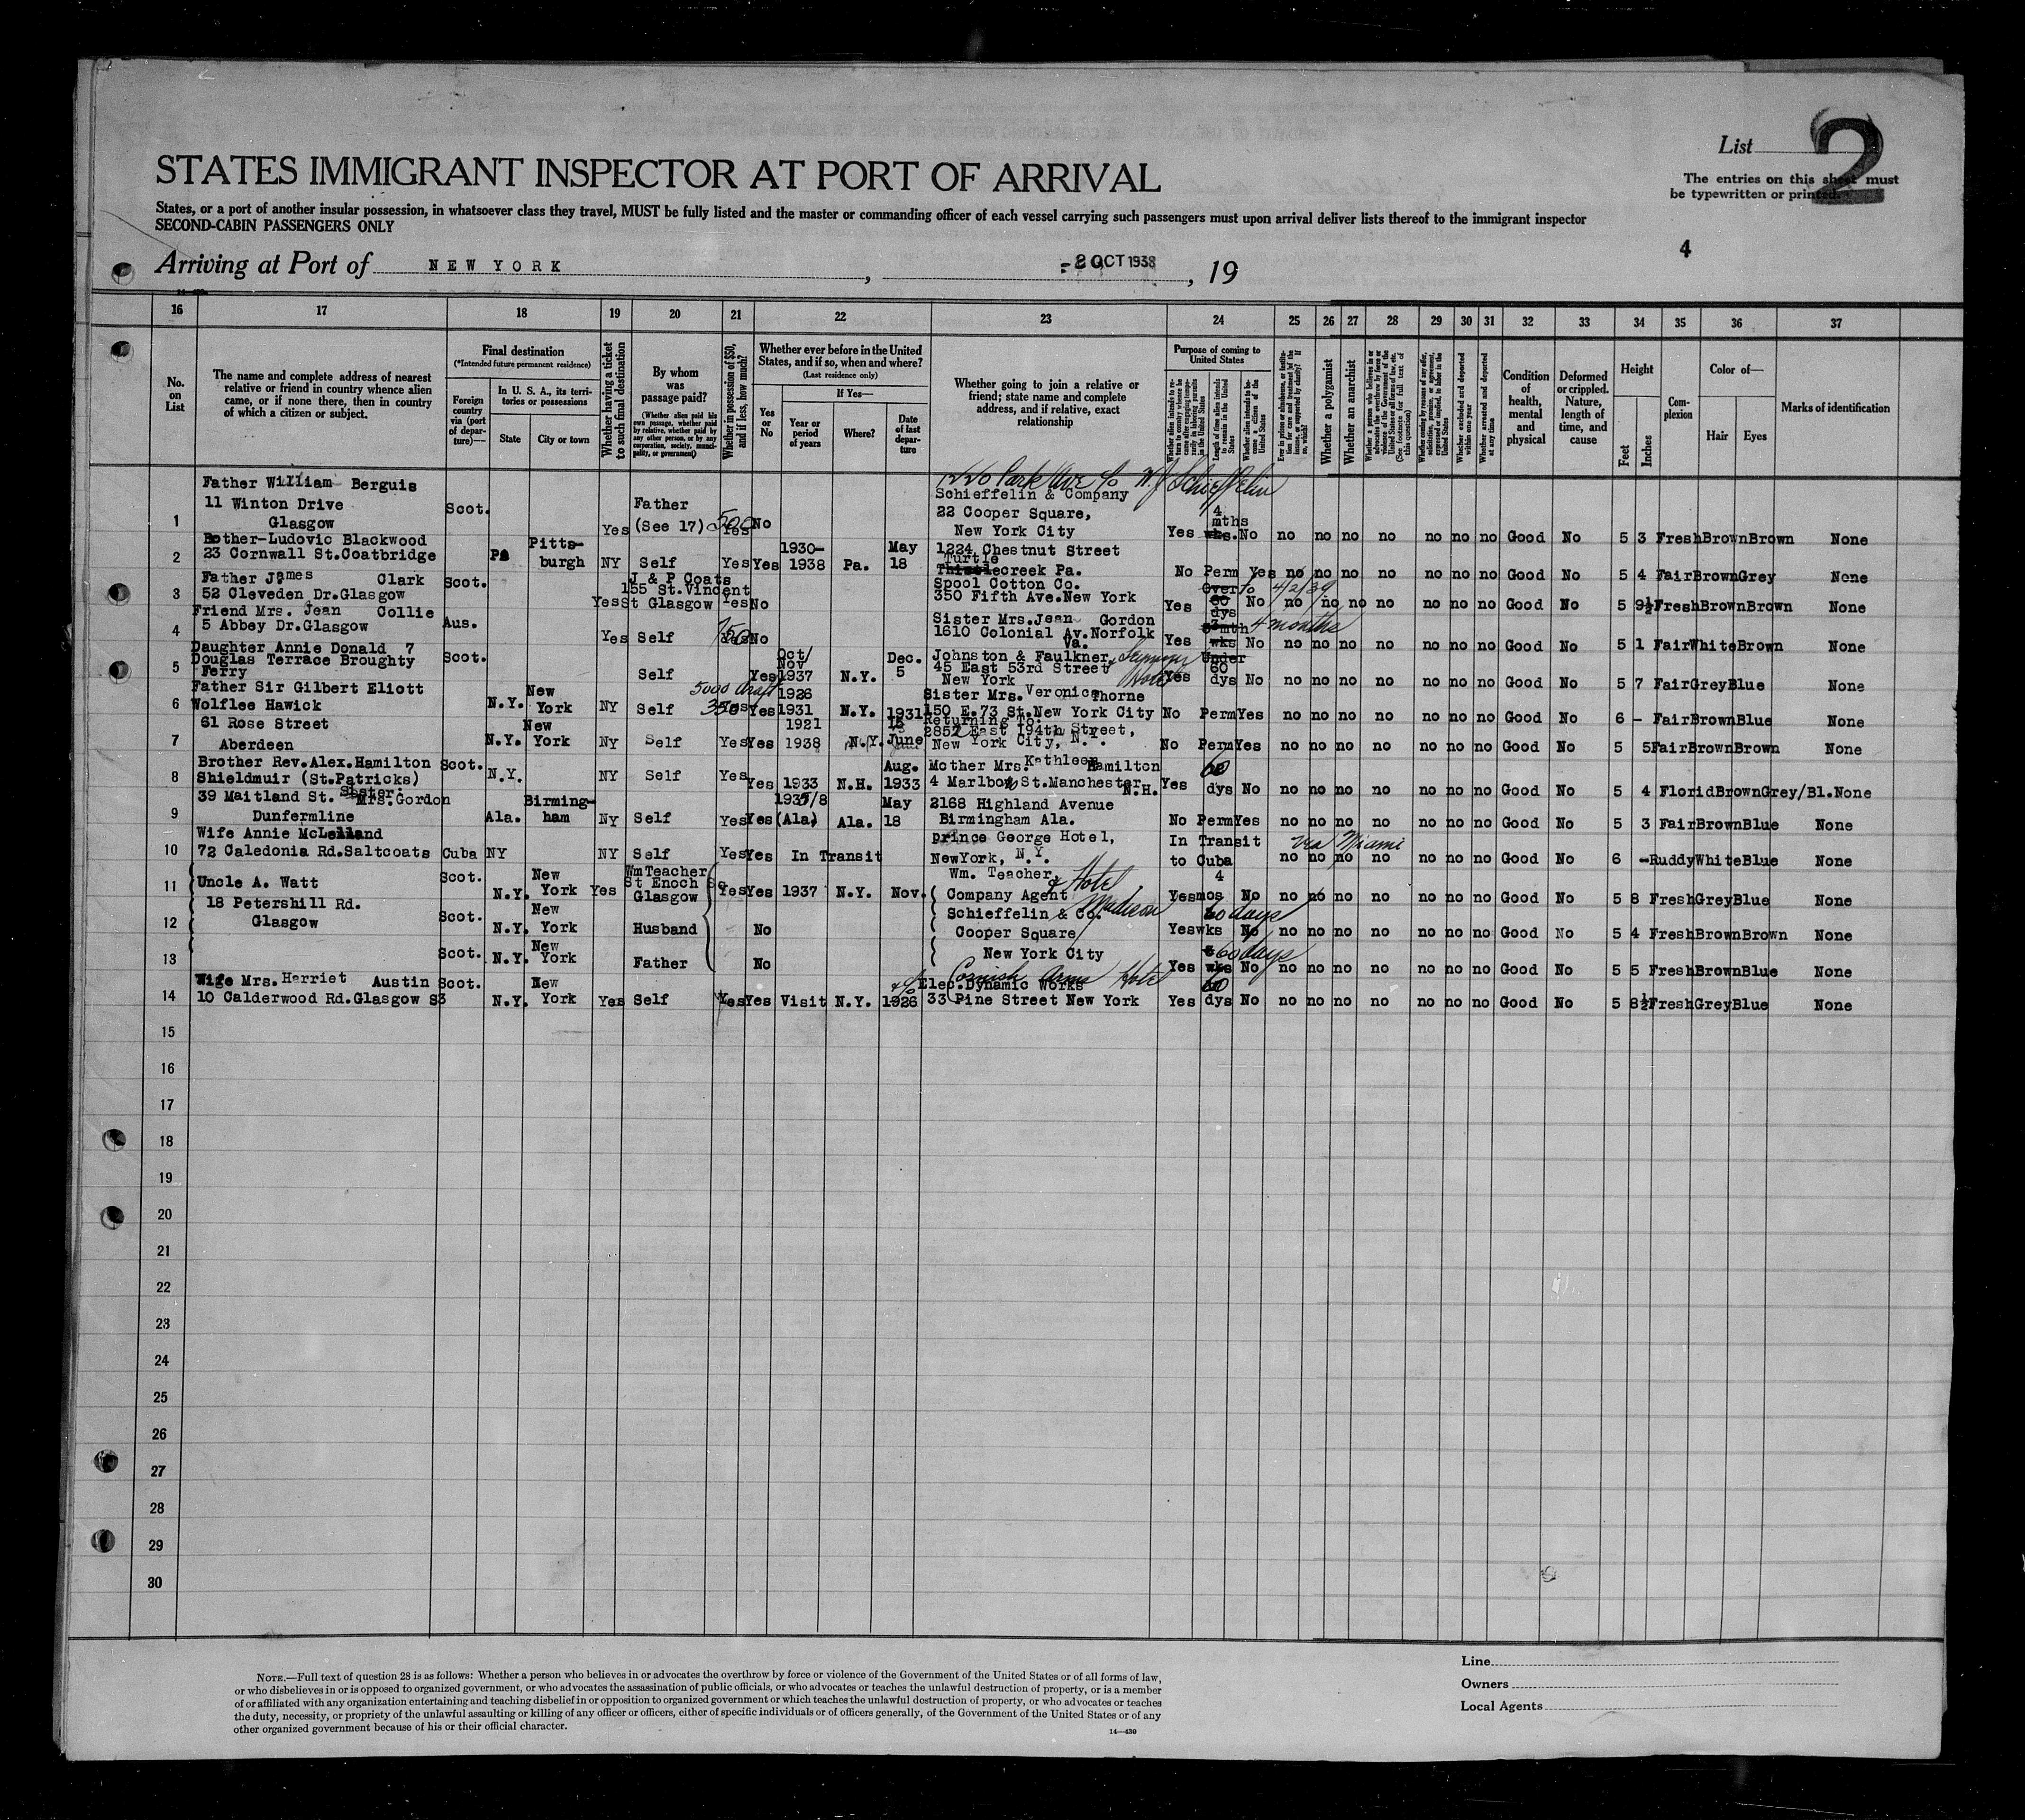 List 2
STATES IMMIGRANT INSPECTOR AT PORT OF ARRIVAL
The entries on this sheet must
be typewritten or printed.
States, or a port of another insular possession, in whatsoever class they travel, MUST be fully listed and the master or commanding officer of each vessel carrying such passengers must upon arrival deliver lists thereof to the immigrant inspector
SECOND-CABIN PASSENGERS ONLY
4
Arriving at Port of NEW YORK, -2 OCT 1938, 19
16 17 18 19 20 21 22 23 24 25 26 27 28 29 30 31 32 33 34 35 36 37
No. on List
The name and complete address of nearest
relative or friend in country whence alien
came, or if none there, then in country
of which a citizen or subject.
Final destination
(*Intended future permanent residence)
Foreign country via (port of departure)—
In U. S. A., its territories or possessions
State
City or town
Whether having a ticket to such final destination
By whom was passage paid?
(Whether alien paid his own passage, whether paid by relative, whether paid by any other person, or by any corporation, society, municipality, or government)
Whether in possession of $50, and if less, how much?
Whether ever before in the United
States, and if so, when and where?
(Last residence only)
Yes or No
If Yes—
Year or period of years
Where?
Date of last departure
Whether going to join a relative or
friend; state name and complete
address, and if relative, exact
relationship
Purpose of coming to
United States
Length of time alien intends to remain in the United States
Whether alien intends to become a citizen of the United States
Whether a polygamist
Whether an anarchist
Whether arrested and deported at any time
Condition of health, mental and physical
Deformed or crippled. Nature, length of time, and cause
Height
Feet
Inches
Complexion
Color of—
Hair
Eyes
Marks of identification
1 Father William Berguis
11 Winton Drive
Glasgow
Scot. Yes Father (See 17) 500 Yes No
Schieffelin & Company
22 Cooper Square,
New York City
Yes 4 mths wks. No no no no no no no no Good No 5 3 Fresh Brown Brown None
2 Bother-Ludovic Blackwood
23 Cornwall St.Coatbridge
Pa Pitts-burgh NY Self Yes Yes 1930-1938 Pa. May 18
1224 Chestnut Street
Turtlecreek Pa.
No Perm Yes no no no no no no no Good No 5 4 Fair Brown Grey None
3 Father James Clark
52 Cleveden Dr.Glasgow
Scot. Yes J & P Coats 155 St.Vincent St Glasgow Yes No
Spool Cotton Co.
350 Fifth Ave.New York
Yes Over 60 dys No to 4/2/39 no no no no no no no Good No 5 9½ Fresh Brown Brown None
4 Friend Mrs. Jean Collie
5 Abbey Dr.Glasgow
Aus. Yes Self 150 Yes No
Sister Mrs.Jean Gordon
1610 Colonial Av.Norfolk
Va.
Yes mth wks No 4 months no no no no no no no Good No 5 1 Fair White Brown None
5 Daughter Annie Donald 7
Douglas Terrace Broughty
Ferry
Scot. Self Yes Oct/Nov 1937 N.Y. Dec. 5
Johnston & Faulkner, Seymour
45 East 53rd Street Hotel
New York
Yes Under 60 dys No no no no no no no no Good No 5 7 Fair Grey Blue None
6 Father Sir Gilbert Eliott
Wolflee Hawick
N.Y. New York NY Self 5000 draft 350 Yes Yes 1926 1931 N.Y. 1931
Sister Mrs. Veronica Thorne
150 E.73 St.New York City
No Perm Yes no no no no no no no Good No 6 - Fair Brown Blue None
7 61 Rose Street
Aberdeen
N.Y. New York NY Self Yes Yes 1921 1938 N.Y. June
Returning To:
2852 East 194th Street,
New York City, N.Y.
No Perm Yes no no no no no no no Good No 5 5 Fair Brown Brown None
8 Brother Rev.Alex.Hamilton
Shieldmuir (St.Patricks)
Scot. N.Y. NY Self Yes Yes 1933 N.H. Aug. 1933
Mother Mrs. Kathleen Hamilton
4 Marlboro St.Manchester
N.H.
Yes 60 dys No no no no no no no no Good No 5 4 Florid Brown Grey/Bl. None
9 39 Maitland St. Sister: Mrs.Gordon
Dunfermline
Ala. Birming-ham NY Self Yes Yes 1937/8 (Ala) Ala. May 18
2168 Highland Avenue
Birmingham Ala.
No Perm Yes no no no no no no no Good No 5 3 Fair Brown Blue None
10 Wife Annie McLelland
72 Caledonia Rd.Saltcoats
Cuba NY NY Self Yes Yes In Transit
Prince George Hotel,
NewYork, N.Y.
In Transit to Cuba via Miami no no no no no no no Good No 6 - Ruddy White Blue None
11 Uncle A. Watt
18 Petershill Rd.
Glasgow
Scot. N.Y. New York Yes WmTeacher St Enoch Sq Glasgow Yes Yes 1937 N.Y. Nov.
Wm. Teacher,
Company Agent & Hotel Madison
Schieffelin & Co.
Cooper Square
New York City
Yes 4 mos No no no no no no no no Good No 5 8 Fresh Grey Blue None
12 Scot. N.Y. New York Husband No
Yes wks No 60 days no no no no no no no Good No 5 4 Fresh Brown Brown None
13 Scot. N.Y. New York Father No
Yes wks No 60 days no no no no no no no Good No 5 5 Fresh Brown Blue None
14 Wife Mrs. Harriet Austin
10 Calderwood Rd.Glasgow S3
Scot. N.Y. New York Yes Self Yes Yes Visit N.Y. 1926
c/o Cornish Arms Hotel
Elec.Dynamic Works
33 Pine Street New York
Yes 60 dys No no no no no no no no Good No 5 8½ Fresh Grey Blue None
15
16
17
18
19
20
21
22
23
24
25
26
27
28
29
30
NOTE.—Full text of question 28 is as follows: Whether a person who believes in or advocates the overthrow by force or violence of the Government of the United States or of all forms of law,
or who disbelieves in or is opposed to organized government, or who advocates the assassination of public officials, or who advocates or teaches the unlawful destruction of property, or is a member
of or affiliated with any organization entertaining and teaching disbelief in or opposition to organized government or which teaches the unlawful destruction of property, or who advocates or teaches
the duty, necessity, or propriety of the unlawful assaulting or killing of any officer or officers, either of specific individuals or of officers generally, of the Government of the United States or of any
other organized government because of his or their official character.
14—430
Line
Owners
Local Agents